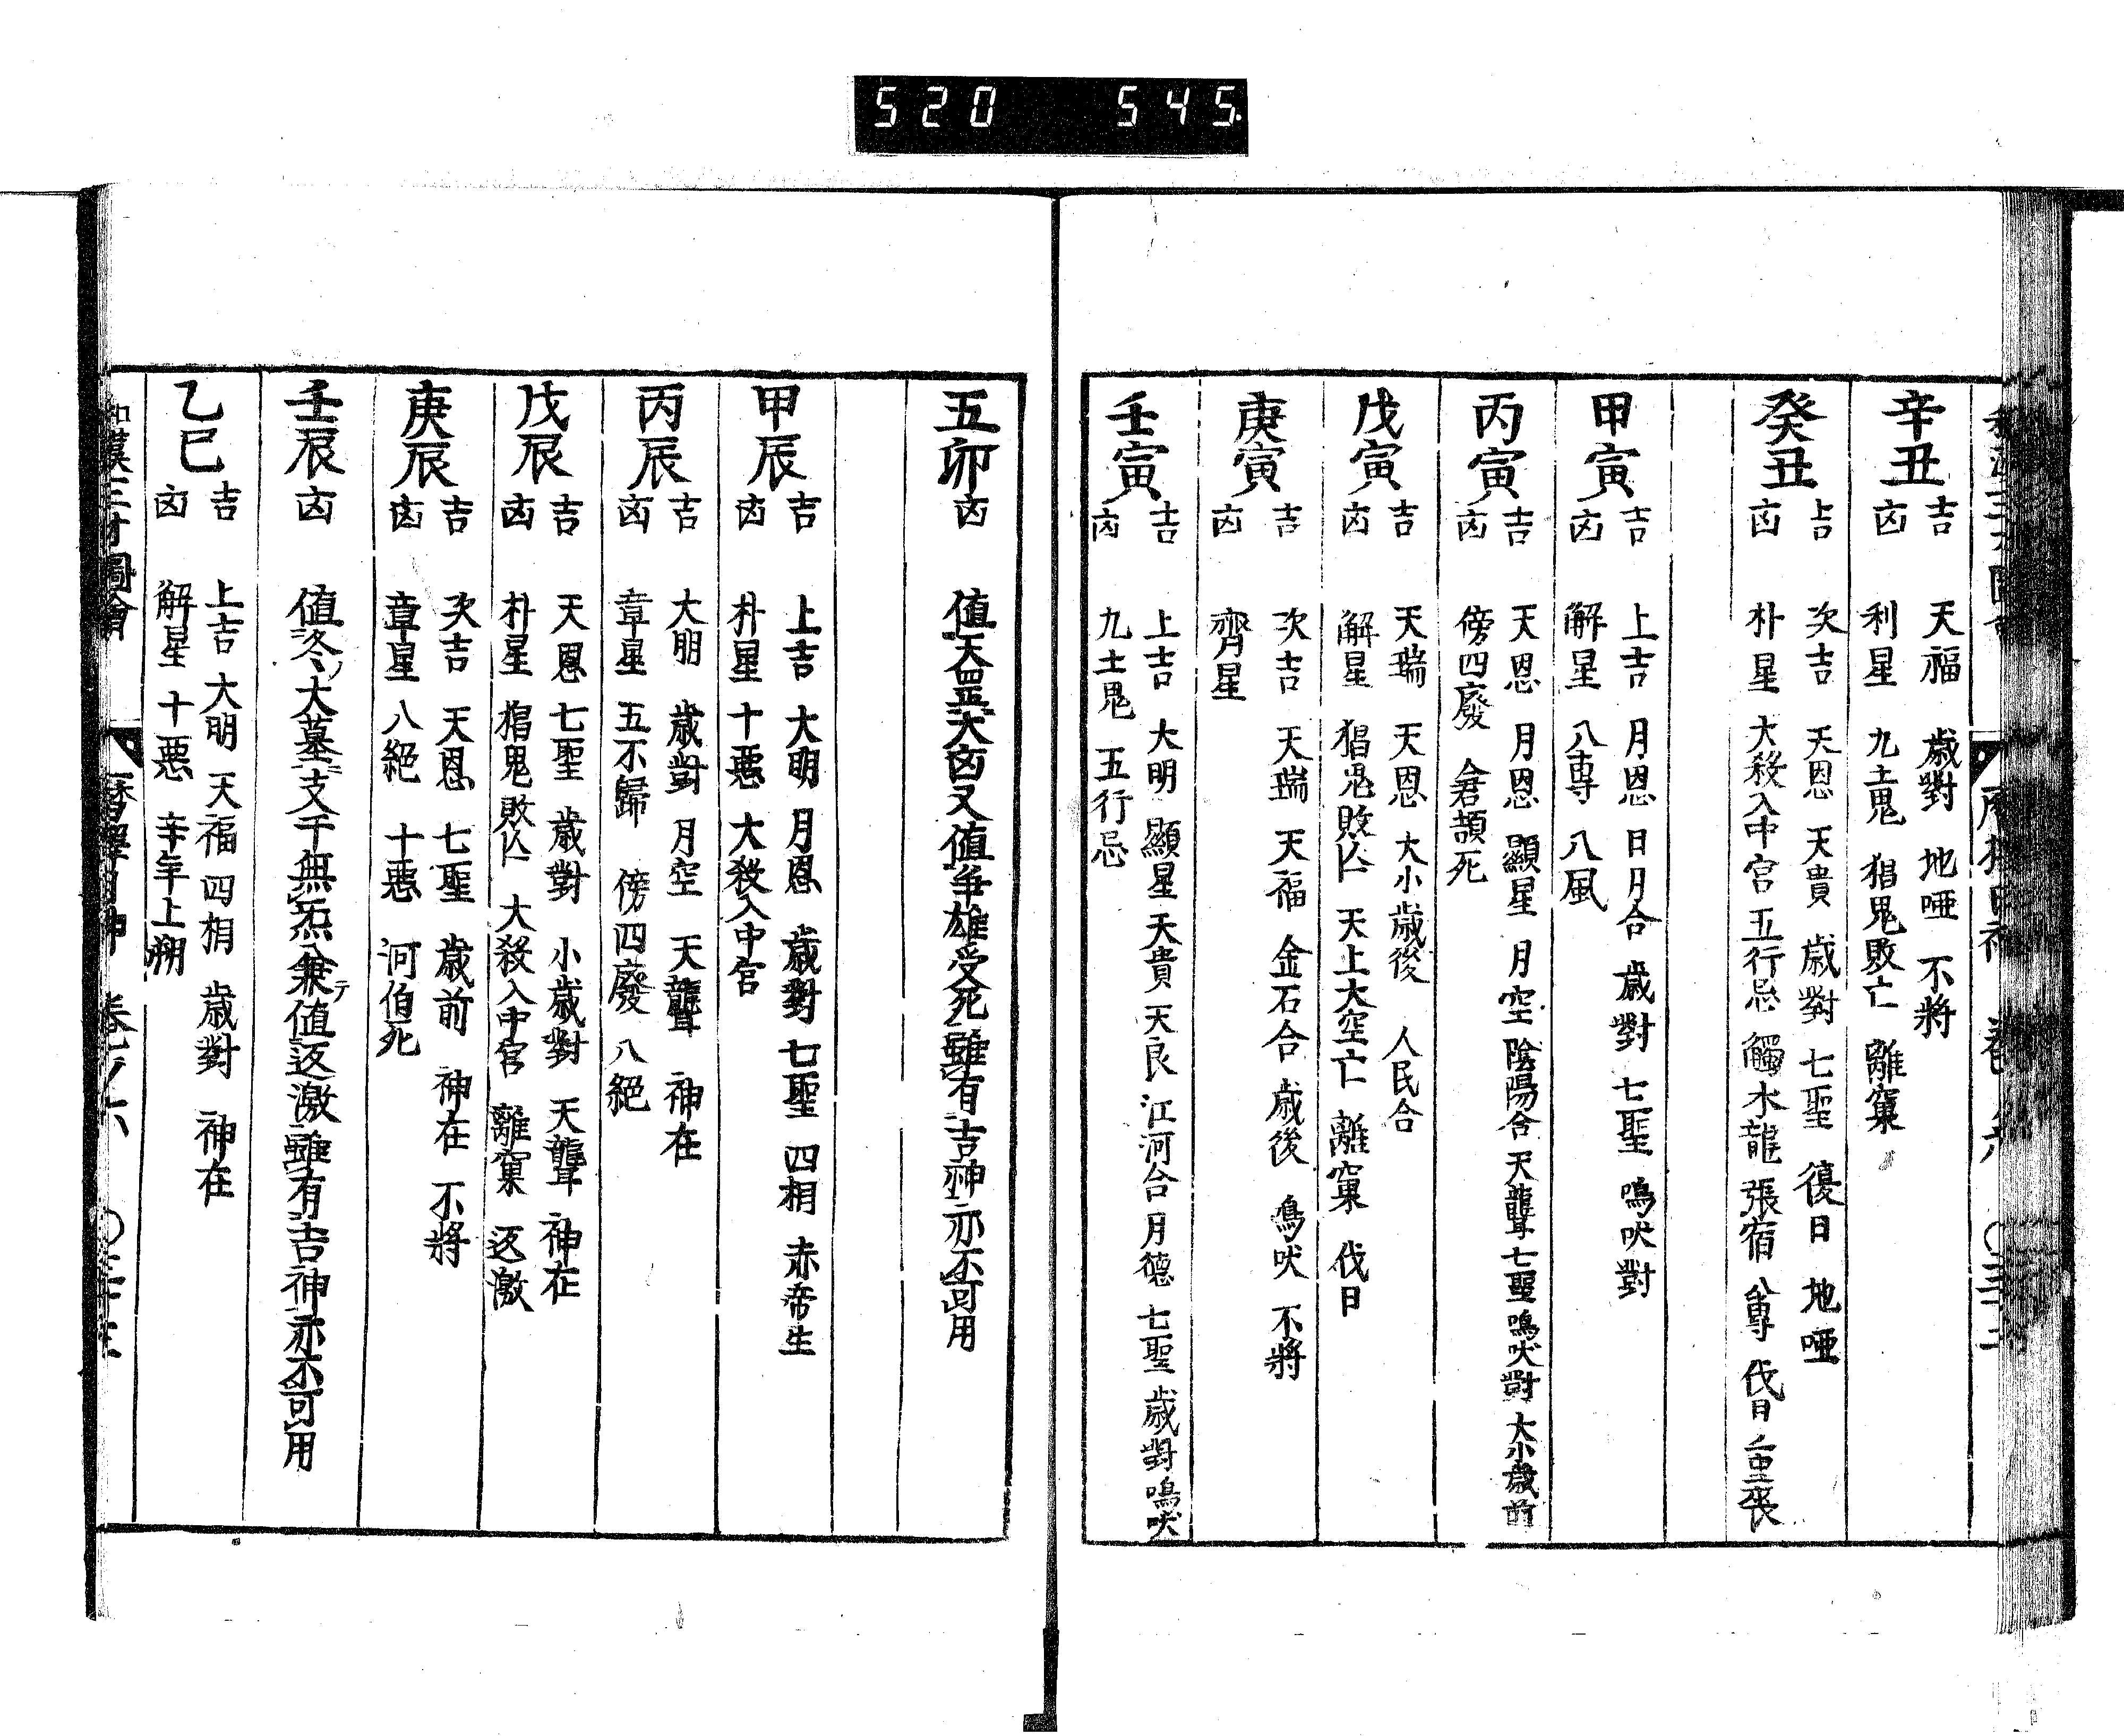 520 545
辛丑
吉 天福 歳對 地啞 不將
凶 利星 九土鬼 猖鬼敗亡 離窠
癸丑
吉 次吉 天恩 天貴 歳對 七聖 復日 地啞
凶 朴星 大殺入中宮 五行忌 觸水龍 張宿 八專 伐日 重喪
甲寅
吉 上吉 月恩 日月合 歳對 七聖 鳴吠對
凶 解星 八專 八風
丙寅
吉 天恩 月恩 顯星 月空 陰陽合 天聾 七聖 鳴吠對 大小歳前
凶 傍四廢 倉頡死
戊寅
吉 天瑞 天恩 大小歳後 人民合
凶 解星 猖鬼敗亡 天上大空亡 離窠 伐日
庚寅
吉 次吉 天瑞 天福 金石合 歳後 鳴吠 不將
凶 齊星
壬寅
吉 上吉 大明 顯星 天貴 天良 江河合 月德 七聖 歳對 鳴吠
凶 九土鬼 五行忌
五卯
凶 値天罡大凶又値爭雄受死雖有吉神亦不可用
甲辰
吉 上吉 大明 月恩 歳對 七聖 四相 赤帝生
凶 朴星 十惡 大殺入中宮
丙辰
吉 大明 歳對 月空 天聾 神在
凶 章星 五不歸 傍四廢 八絕
戊辰
吉 天恩 七聖 歳對 小歳對 天聾 神在
凶 朴星 猖鬼敗亡 大殺入中宮 離窠 返激
庚辰
吉 次吉 天恩 七聖 歳前 神在 不將
凶 章星 八絕 十惡 河伯死
壬辰
凶 値冬ノ大墓ニ支干無炁兼テ値返激雖有吉神亦不可用
乙巳
吉 上吉 大明 天福 四相 歳對 神在
凶 解星 十惡 辛年上朔
和漢三才圖會 暦擇日神 卷之六